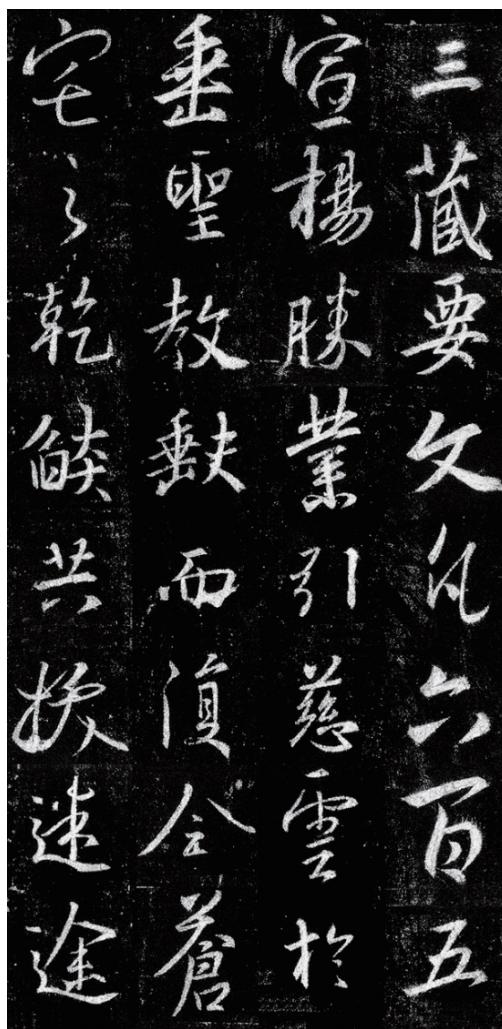 三藏要文凡六百五
宣揚勝業引慈雲於
垂聖教缺而復全蒼
宅之乾燄共拔迷途